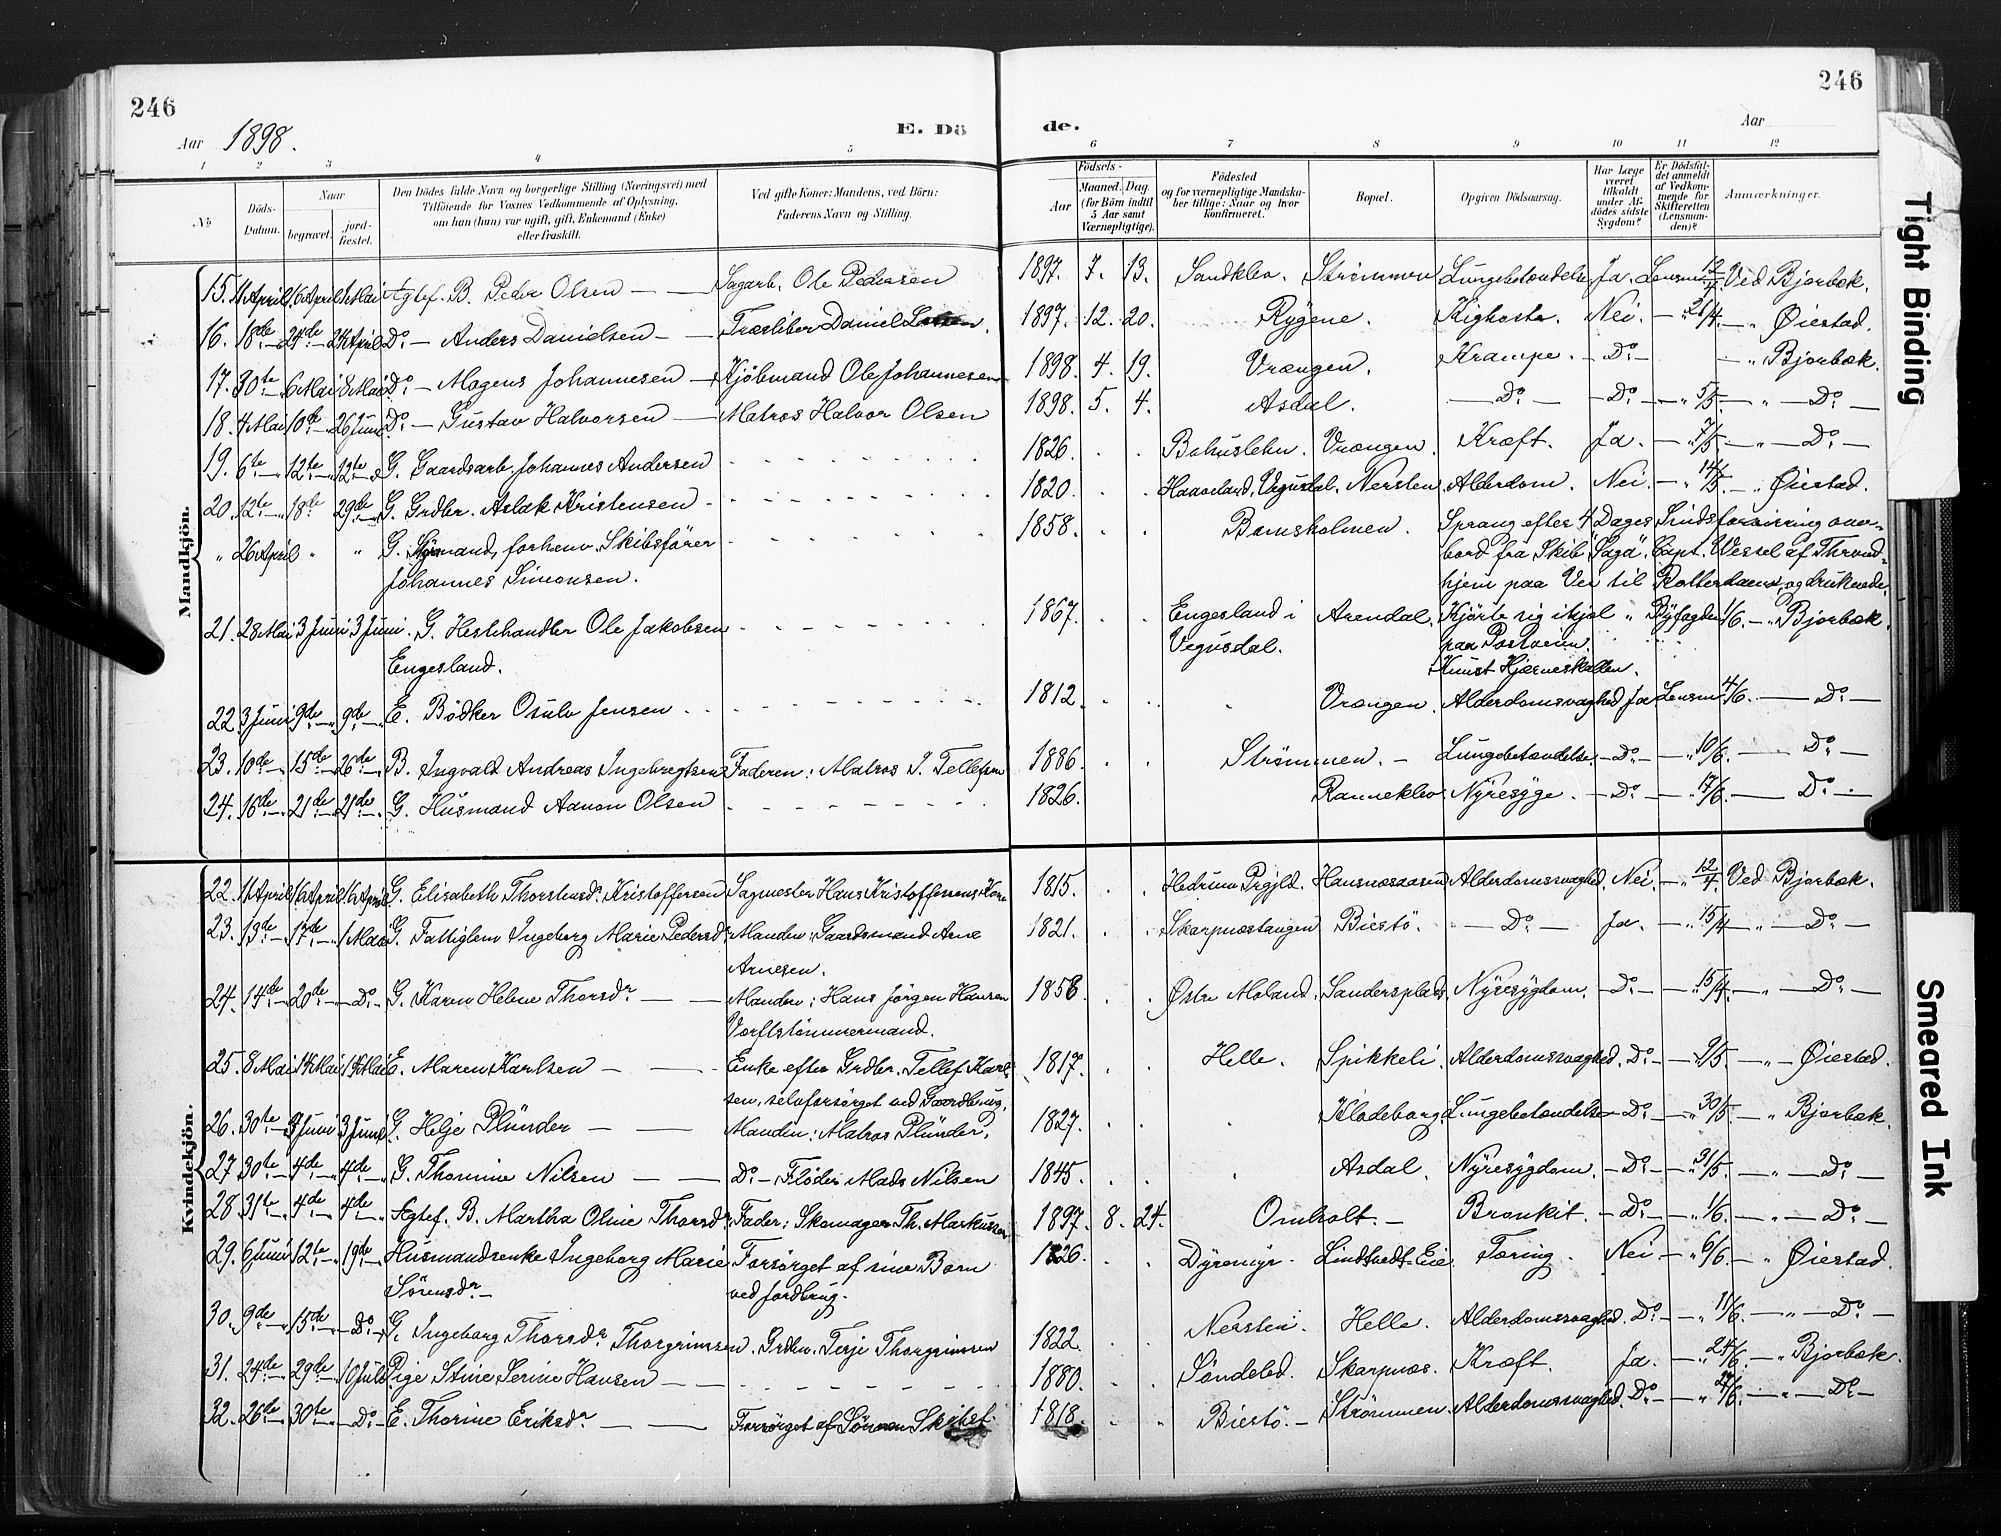 246
246
Aar 1898.
E. Dö
de.
Aar
1 2 3 4 5 6 7 8 9 10 11 12
No
Döds-Datum.
Naar
begravet.
jordfæstet.
Den Dödes fulde Navn og borgerlige Stilling (Næringsvei) med
Tilföiende for Voxnes Vedkommende af Oplysning,
om han (hun) var ugift, gift, Enkemand (Enke)
eller fraskilt.
Ved gifte Koner: Mandens, ved Börn:
Faderens Navn og Stilling.
Födsels-
Aar
Maaned. Dag.
(for Börn indtil
5 Aar samt
Værnepligtige).
Födested
og for værnepligtige Mandskaber tillige: Naar og hvor
konfirmeret.
Bopæl.
Opgiven Dödsaarsag.
Har Læge
været
tilkaldt
under Afdödes sidste
Sygdom?
Er Dödsfaldet anmeldt
af Vedkommende for
Skifteretten
(Lensmanden)?
Anmærkninger.
Mandkjön.
15. 11 April 16 April 1 Mai Ægtef. B. Peder Olsen — — Sagarb. Ole Pedersen 1897. 7. 13. Sandklev. Strømmen Lungebetændelse Ja. Lensm. 12/4 Ved Bjorbæk.
16. 18de 24de 24 April Do — Anders Danielsen — — Træsliber Daniel 1897. 12. 20. Rygene. Kighoste. Nei. — " 21/4 — " Øiestad.
17. 30te 6 Mai 8 Mai Do — Mogens Johannesen — Kjöbmand Ole Johannesen 1898. 4. 19. Vrængen. Krampe. — Do — — " Bjorbæk.
18. 4 Mai 10de 26 Juni Do — Gustav Halvorsen — Matros Halvor Olsen 1898. 5. 4. Asdal. — Do — — Do — — " 5/5 — " — Do —
19. 6te 12te 12te G. Gaardsarb. Johannes Andersen 1826. Bahuslehn. Vrængen. Kræft. Ja. — " 7/5 — " — Do —
20. 12te 18de 29de G. Grdbr. Aslak Kristensen 1820. Haaveland, Vegusdal. Nersten Alderdom. Nei. — " 14/5 — " Øiestad.
" 26 April " " G. Sömand, forhenv. Skibsförer 1858. Bomsholmen. Sprang efter 4 Dages Sindsforvirring over-
Johannes Simonsen. bord fra Skib "Saga". Capt. Wessel af Thrond-
hjem paa Vei til Rotterdam, og druknede.
21. 28 Mai 3 Juni 3 Juni. G. Hestehandler Ole Jakobsen 1867. Engesland i Arendal. Kjörte sig ihjel " Byfogden 1/6. — " Bjorbæk.
Engesland. Vegusdal. paa Postveien.
Knust Hjerneskallen.
22. 3 Juni 9de 9de E. Bödker Osulv Jensen 1812. " Vrængen. Alderdomssvaghed Ja Lensm. 4/6. — Do —
23. 10de 15de 26de B. Ingvald Andreas Ingebregtsen Faderen: Matros I. Tellefsen 1886. Strømmen. — Lungebetændelse. — Do — — " 10/6. — Do —
24. 16de 21de 21de G. Husmand Aanon Olsen 1826. Ranneklev. Nyresyge. — Do — — " 17/6. — Do —
Kvindekjön.
22. 11 April 16 April 16 April G. Elisabeth Thorstensdr. Kristoffersen Sagmester Hans Kristoffersens Kone 1815. Hedrum Prgjld. Hansnæsaasen Alderdomssvaghed. Nei. — " 12/4. Ved Bjorbæk.
23. 13de 17de 1 Mai G. Fattiglem Ingeborg Marie Pedersdr. Manden: Gaardsmand Arne 1821. Skarpnæstangen Biestö. — Do — Ja. — " 15/4 — " — Do —
Arnesen.
24. 14de 20de — Do — G. Karen Helene Thorsdr. — — Manden: Hans Jörgen Hansen 1856. Østre Moland. Sandersplads. Nyresygdom. — Do — — " 15/4. — " — Do —
Værftstömmermand.
25. 8 Mai 14 Mai 14 Mai E. Maren Karlsen — — Enke efter Grdbr. Tellef Karl- 1817. Helle. Spikkeli. Alderdomssvaghed. Do — — " 9/5 — " Øiestad.
sen, selvforsörget ved Gaardbrug.
26. 30te 3 Juni 3 Juni G. Helje Plünder — — Manden: Matros Plünder. 1827. " Klodeborg. Lungebetændelse — Do — — " 30/5. — " Bjorbæk.
27. 30te 4de 4de G. Thomine Nilsen — — Do — Fløder Mads Nilsen 1845. " Asdal. Nyresygdom. — Do — — " 31/5. — " — Do —
28. 31te 4de 4de Ægtef. B. Martha Oline Thorsdr. Fader: Skomager Th. Markussen 1897. 8. 24. Omholt. — Bronkit. — Do — — " 1/6. — " — Do —
29. 6 Juni 12te 19de Husmandsenke Ingeborg Marie Forsörget af sine Börn 1826. Dyremyr. Lindtvedt-Eie Tæring. Nei — " 6/6. — " Øiestad.
Sörensdr. — ved Jordbrug.
30. 9de 15de — Do — G. Ingeborg Thorsdr. Thorgrimsen. Grdbr. Terje Thorgrimsen 1822. Nersten. Helle. Alderdomssvaghed. Do — — " 11/6. — " — Do —
31. 24de 29de 10 Juli Pige Stine Serine Hansen — — 1880. Söndeled. Skarpnæs. Kræft. Ja. — " 24/6. — " Bjorbæk.
32. 26te 30te — Do — E. Thorine Eriksdr. — — Forsörget af Sönnen 1818. " Biestö. — Strømmen. Alderdomssvaghed. Do — — " 27/6. — " — Do —
Tight Binding
Smeared Ink